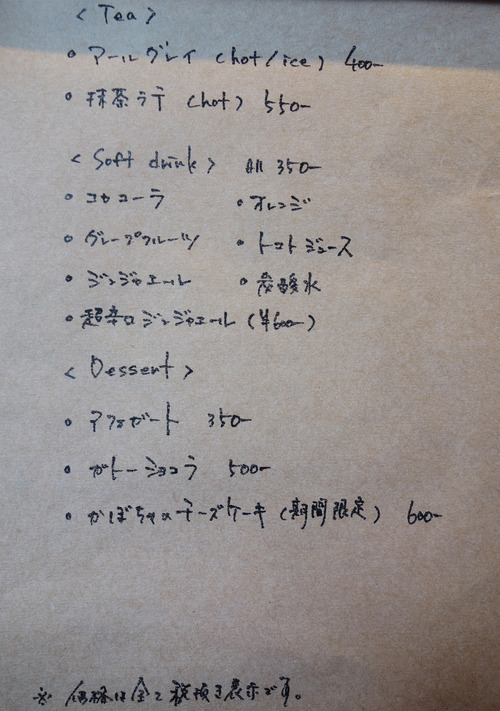 < Tea >
• アールグレイ (hot/ice) 400-
• 抹茶ラテ (hot) 550-
< Soft drink > All 350-
• コカコーラ • オレンジ
• グレープフルーツ • トマトジュース
• ジンジャエール • 炭酸水
• 超辛口ジンジャエール (¥600-)
< Dessert >
• アフォガート 350-
• ガトーショコラ 500-
• かぼちゃのチーズケーキ (期間限定) 600-
※ 価格は全て税抜き表示です。